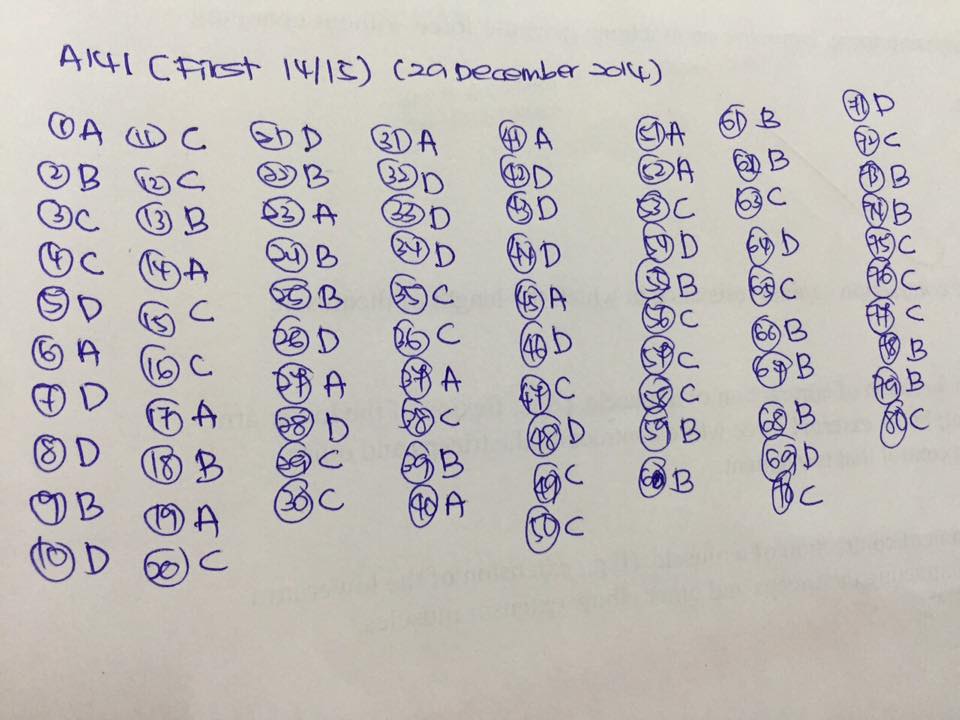 A141 (First 14/15) (29 December 2014)
1 A
2 B
3 C
4 C
5 D
6 A
7 D
8 D
9 B
10 D
11 C
12 C
13 B
14 A
15 C
16 C
17 A
18 B
19 A
20 C
21 D
22 B
23 A
24 B
25 B
26 D
27 A
28 D
29 C
30 C
31 A
32 D
33 D
34 D
35 C
36 C
37 A
38 C
39 B
40 A
41 A
42 D
43 D
44 D
45 A
46 D
47 C
48 D
49 C
50 C
51 A
52 A
53 C
54 D
55 B
56 C
57 C
58 C
59 B
60 B
61 B
62 B
63 C
64 D
65 C
66 B
67 B
68 B
69 D
70 C
71 D
72 C
73 B
74 B
75 C
76 C
77 C
78 B
79 B
80 C